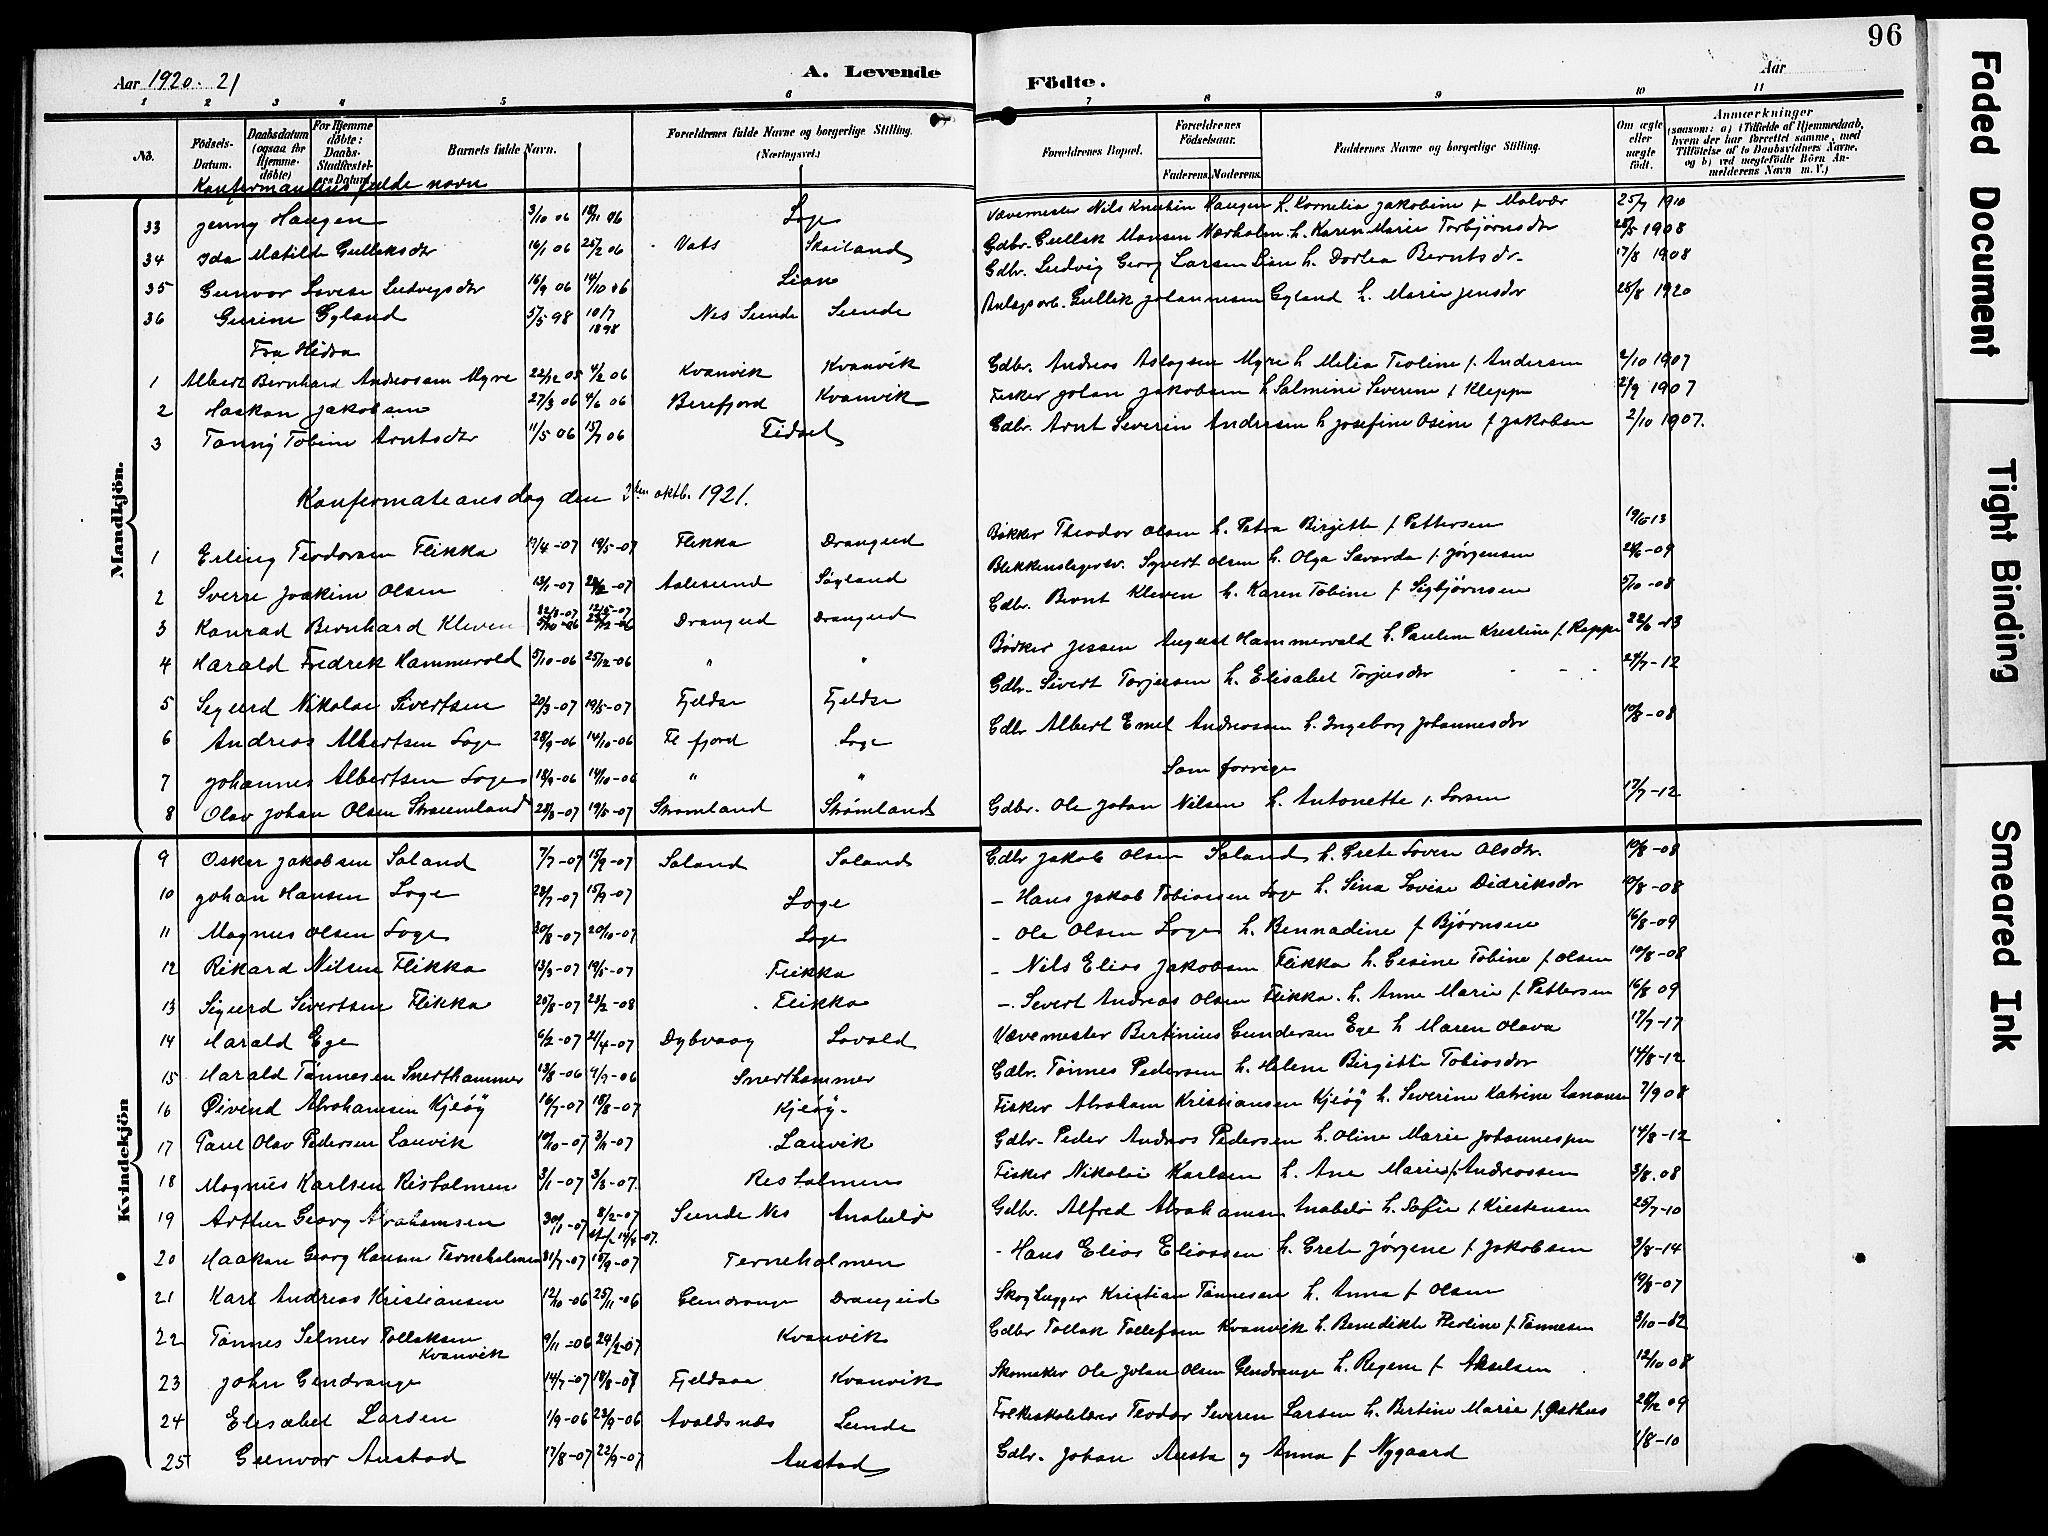 96
Aar 1920-21
A. Levende Födte.
Aar
1 2 3 4 5 6 7 8 9 10 11
No. Födsels-Datum. Daabsdatum (ogsaa for Hjemme-döbte) For Hjemme döbte: Daabs-Stadfæstelses Datum. Barnets fulde Navn. Forældrenes fulde Navne og borgerlige Stilling. (Næringsvei.) Forældrenes Bopæl. Forældrenes Födselsaar. Faderens. Moderens. Faddernes Navne og borgerlige Stilling. Om ægte eller uægte födt. Anmærkninger (saasom: a) i Tilfælde af Hjemmedaab, hvem der har forrettet samme, med Tilföielse af to Daabsvidners Navne, og b) ved uægtefödte Börn Anmelderens Navn m. V.)
Konfermandens fulde navn
33 Jenny Haugen 3/10 06 18/11 06 Loge Vævemester Nils Knudsen Haugen h. Kornelia Jakobine f. Molvær 25/7 1910
34 Ida Matilde Gulleksdtr 16/1 06 25/2 06 Vats Skailand Gdbr. Gullek Monsen Nærholm h. Karen Marie Torbjørnsdtr 28/5 1908
35 Gunvor Lovise Ludvigsdtr 16/9 06 14/10 06 Lian Gdbr. Ludvig Georg Larsen Lian h. Dorlea Berntsdr. 17/8 1908
36 Gurine Gyland 5/5 98 10/7 1898 Nes Sunde Sunde Anlægsarb. Gullik Johannesen Gyland h. Marie Jensdtr 28/8 1920
Fra Hidra
1 Albert Bernhard Andreassen Myre 22/12 05 4/2 06 Kvanvik Kvanvik Gdbr. Andreas Aslagsen Myre h. Milia Teoline f. Andersen 2/10 1907
2 Haakon Jakobsen 27/3 06 4/6 06 Berefjord Kvanvik Fisker Johan Jakobsen h Salmine Severine f Kleppe 21/9 1907
3 Tanny Tobine Arntsdtr 11/5 06 15/7 06 Eidsel Gdbr. Arnt Severin Andersen h Josefine Osine f Jakobsen 2/10 1907.
Mandkjön.
Konfermationsdag den 2den oktb. 1921.
1 Erling Teodorsen Flikka 17/4-07 19/5-07 Flikka Drangeid Bøkker Theodor Olsen h. Petra Birgitte f. Pettersen 19/5-13
2 Sverre Joakim Olsen 13/1-07 Aalesund Søgland Blikkenslagersv. Syvert Olsen h. Olga Savarda f. Jørgensen 24/6-09
3 Konrad Bernhard Kleven Drangeid Drangeid Gdbr. Bernt Kleven h. Karen Tobine f Sigbjørnsen 5/10-08
4 Harald Fredrik Hammervold 5/10-06 25/12-06 " " Bødker Jessen August Hammervold h. Pauline Kristine f. Rappe 22/6-13
5 Sigurd Nikolai Sivertsen 20/3-07 19/5-07 Fjeldse Fjeldse Gdbr. Sivert Torjusen h. Elisabet Torjusdtr - - - 24/7-12
6 Andreas Albertsen Loge 28/9-06 14/10-06 Flefjord Loge Gdbr Albert Emel Andreassen h. Ingeborg Johannesdtr 10/8-08
7 Johannes Albertsen Loge 18/9-06 14/10-06 " " Som forrige
8 Olav Johan Olsen Straumland 28/3-07 19/5-07 Strømland Strømland Gdbr. Ole Johan Nilsen h. Antonette f. Larsen 17/7-12
9 Oskar Jakobsen Saland 7/7-07 15/9-07 Saland Saland Gdbr Jakob Olsen Saland h. Grete Lovise Olsdtr. 10/8-08
10 Johan Hansen Loge 28/7-07 15/9-07 Loge - Hans Jakob Tobiassen Loge h. Sina Lovise Didriksdtr 10/8-08
11 Magnus Olsen Loge 30/8-07 20/10-07 Loge - Ole Olsen Loge h. Bennadine f Bjørnsen 16/8-09
12 Rikard Nilsen Flikka 13/3-07 19/5-07 Flikka - Nils Elias Jakobsen Flikka h. Gesine Tobine f Olsen 10/8-08
13 Sigurd Sivertsen Flikka 25/8-07 23/2-08 Flikka - Severt Andreas Olsen Flikka h. Anne Marie f Pettersen 16/8 09
14 Harald Ege 6/2-07 21/4-07 Dybvaag Lovold Vævemester Bertinius Gundersen Ege h Maren Olava 17/7-17
15 Harald Tønnesen Snerthammer 13/8-06 9/9-06 Snerthammer Gdbr. Tønnes Pedersen h. Helene Birgitte Tobiasdtr 14/8-12
Kvindekjön
16 Øivind Abrahamsen Kjeøy 16/7-07 18/8-07 Kjeøy Fisker Abraham Kristiansen Kjeøy h. Severine Katrine 7/9 08
17 Paul Olav Pedersen Lauvik 10/10-07 3/11-07 Lauvik Gdbr. Peder Andreas Pedersen h. Oline Marie Johannesen 14/8-12
18 Magnus Karlsen Risholmen 3/1-07 3/3-07. Risholmen Fisker Nikolai Karlsen h. Ane Marie f. Andreassen 3/8.08
19 Arthur Georg Abrahamsen 30/1-07 8/2-07 st.f. 14/4-07. Sunde Nes Anabeløe Gdbr. Alfred Abrahamsen Anabeløe h. Sofie f Kristensen 25/7-10
20 Haakon Georg Hansen Terneholmen 31/7-07 15/9-07 Terneholmen - Hans Elias Eliassen h. Grete Jørgene f Jakobsen 3/8-14
21 Karl Andreas Kristiansen 12/10-06 25/11-06 Gendrange Drangeid Skoghugger Kristian Tønnesen h. Anna f Olsen 19/9-07
22 Tønnes Selmer Tollaksen Kvanvik 9/11-06 24/2-07 Kvanvik Gdbr Tollak Tollefsen Kvanvik h. Benedikte Theoline f Tønnesen 3/10-82
23 John Gendrange 14/7-07 18/8-07 Fjeldsaa Kvanvik Skomaker Ole Johan Olsen Gendrange h. Regene f Akselsen 12/10 08
24 Elisabet Larsen 1/9-06 23/9-06 Avaldsnæs Sunde Folkeskolelærer Teodor Severen Larsen h. Bertine Marie f. Østhus 09
25 Gunvor Austad 17/8-07 22/9-07 Austad Gdbr. Johan Austa og Anna f Nygaard 1/8-10
Faded Document
Tight Binding
Smeared Ink